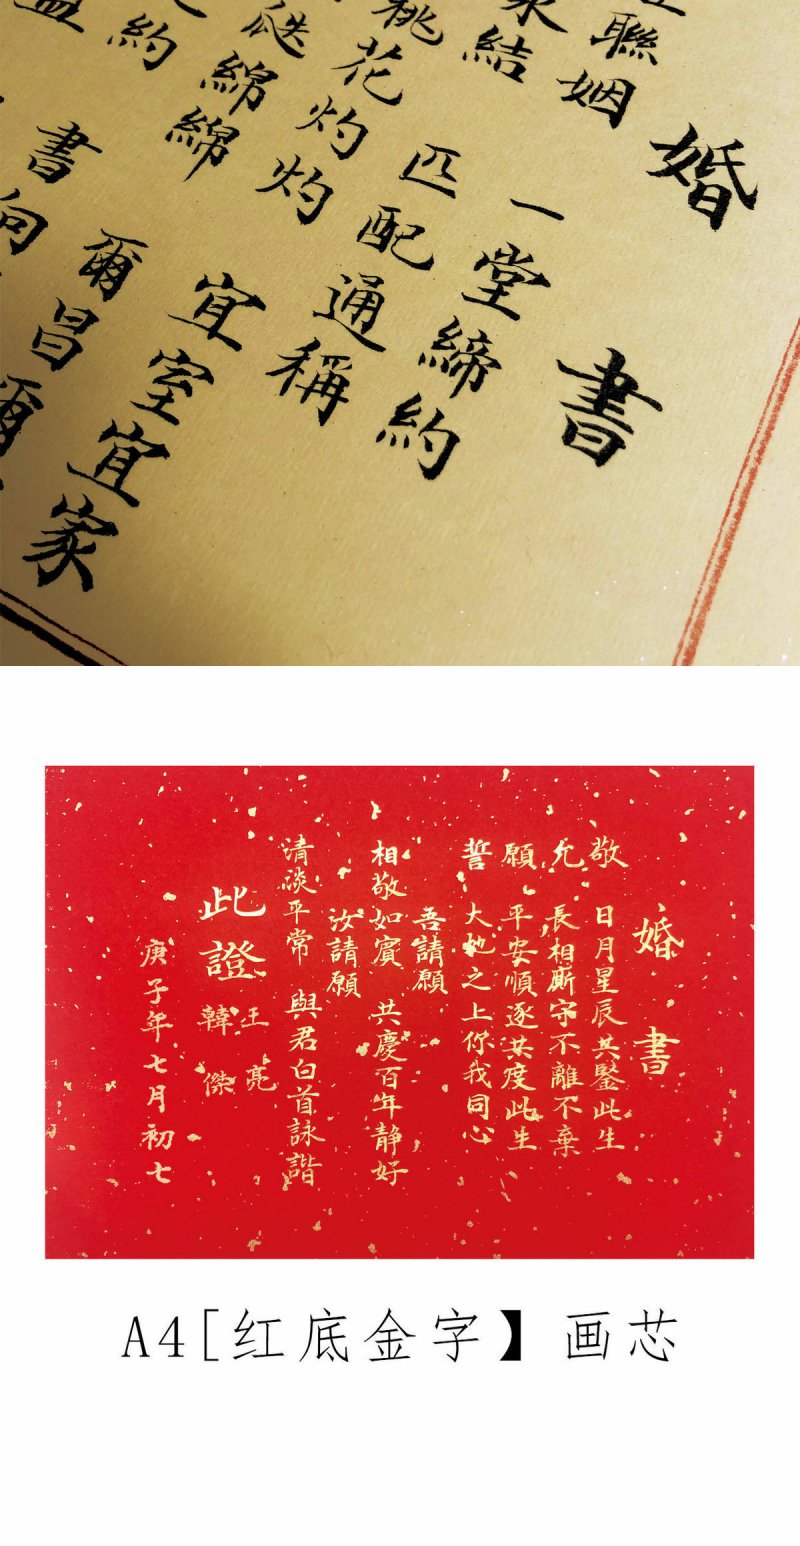 婚書
聯姻 一堂締約
結 匹配通稱
桃花灼灼 宜室宜家
瓞綿綿 爾昌爾
約 書向
盟
婚書
敬 日月星辰其鑒此生
允 長相廝守不離不棄
願 平安順逐共度此生
誓 大地之上你我同心
吾請願
相敬如賓 共慶百年靜好
汝請願
清談平常 與君白首詠諧
此證
王亮
韓傑
庚子年七月初七
A4[红底金字】画芯